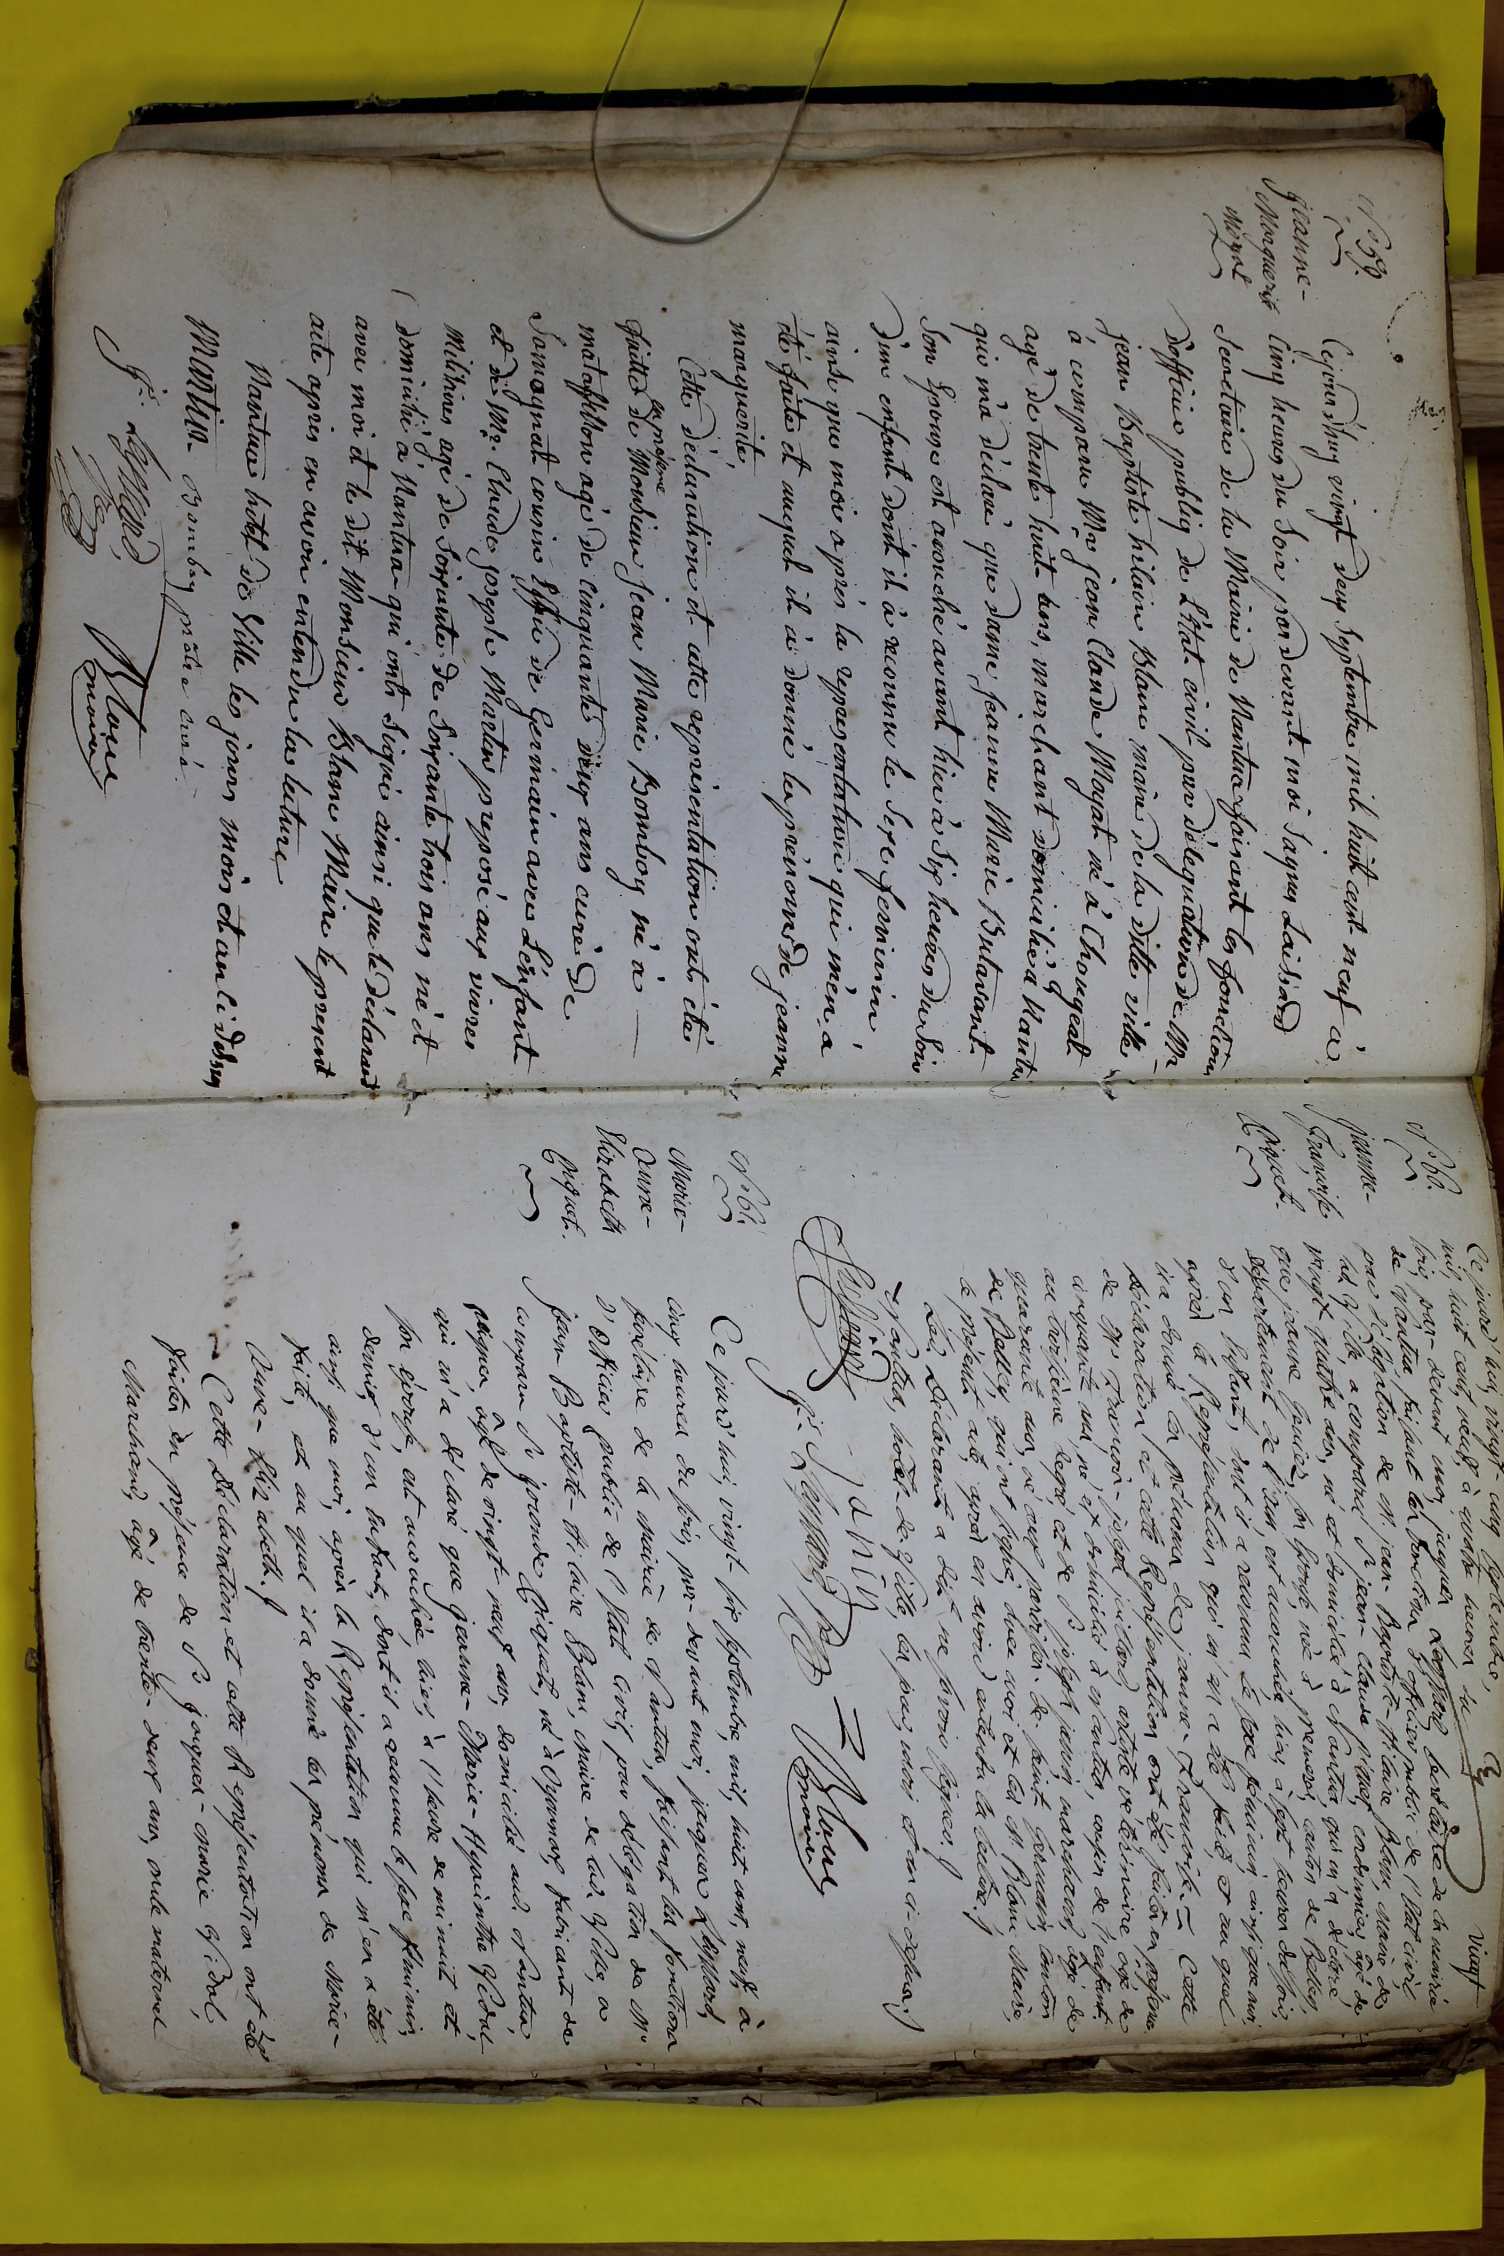 N° 59.
Jeanne-
Marguerite
Moyat
Cejourd'huy vingt deux Septembre mil huit cent neuf à
Cinq heures du Soir par devant moi Jaques
Secretaire de la Mairie de Nantua faisant les fonctions
d'officier public de L'état civil par délégation de Mr
jean Baptiste hilaire Blanc maire de la ditte ville
à comparu Mr jean Claude Moyat né à Chougeat
agé de trente huit ans, marchant domicilié à Nantua
qui m'a déclaré que dame jeanne Marie Butavant
Son Epouse est accouché avant hier à Six heures du Soir
d'un enfant dont il à reconnu le Sexe feminin,
ainsi que moi après la représentation qui m'en a
été faite et auquel il à donné les prénoms de jeanne
marguerite,
Cette déclaration et cette représentation ont étés
faitte en présence de Monsieur jean Marie Bombog né à
mataffelon agé de Cinquante deux ans curé de
Samognat cousin de Germain avec L'enfant
et de Mr. Claude joseph Martin preposé aux vivres
Militaires agé de Soixante de Soixante trois ans né et
domicilié à Nantua qui ont Signé ainsi que le déclarant
avec moi et le dit Monsieur Blanc Maire le present
acte apres en avoir entendu la lecture
Nantua hotel de Ville les jours mois et an ci dessus
Martin Bombog prêtre curé
Blanc
maire
vingt
N° 60.
Jeanne-
Françoise
Piquet
Ce jourd'hui, vingt-cinq septembre,
mil, huit cent, neuf, à quatre heures du
soir, par-devant moi, jaques secrétaire de la mairie
de Nantua, faisant les fonctions d'officier public de l'état civil
par délégation de Mr jean-Baptiste-Hilaire Blanc, Maire de
lad. Ville, a comparu Sr jean-claude Piquet, cordonnier, âgé de
vingt quatre ans, né et domicilié à Nantua, qui m'a déclaré,
que jeanne son Epouse, née à canton de Belley
Département de l'ain est accouchée, hier, à sept heures du soir,
d'un Enfant, dont il a reconnu le sexe feminin, ainsi que moi,
après la Représentation qui m'en a été faite, et au quel
il a donné les prénoms de jeanne-Françoise. Cette
déclaration et cette Représentation ont été faites en présence
de Mr François joseph artiste vétérinaire agé de
cinquante ans, né et domicilié à Nantua, cousin de l'enfant
au troisième degré et de Sr joseph janin, marchand, âgé de
quarante ans, de saint Germain, canton
de Belley, qui ont signé, avec moi et led. Mr Blanc Maire,
le présent acte, après en avoir entendu la lecture.
Led. Déclarant a dit ne savoir signer.
Nantua, hotel-de-Ville, les jour, mois et an ci-dessus
janin
Blanc
maire
N° 61.
Marie-
Anne-
Elizabeth
Piquet.
Ce jourd'hui, vingt-six septembre, mil, huit cent, neuf, à
cinq heures du soir, par-devant moi, jaques
secrétaire de la mairie de Nantua, faisant les fonctions
d'officier public de l'état civil, par délégation de Mr
jean-Baptiste-Hilaire Blanc, maire de lad. Ville, a
comparu Sr Piquet, né à Oyonnax, fabricant de
peignes, âgé de vingt-neuf ans, domicilié aud. Nantua,
qui m'a déclaré que jeanne-Marie-Hyacinthe Vidal
son épouse, est accouchée, hier, à l'heure de minuit et
demie, d'un enfant, dont il a reconnu le sexe feminin,
ainsi que moi, après la Représentation qui m'en a été
faite, et au quel il a donné les prénoms de Marie-
Anne-Elizabeth.
Cette déclaration et cette Représentation ont été
faites en présence de Sr jaques-marie Vidal,
Marchand, âgé de trente-deux ans, oncle maternel